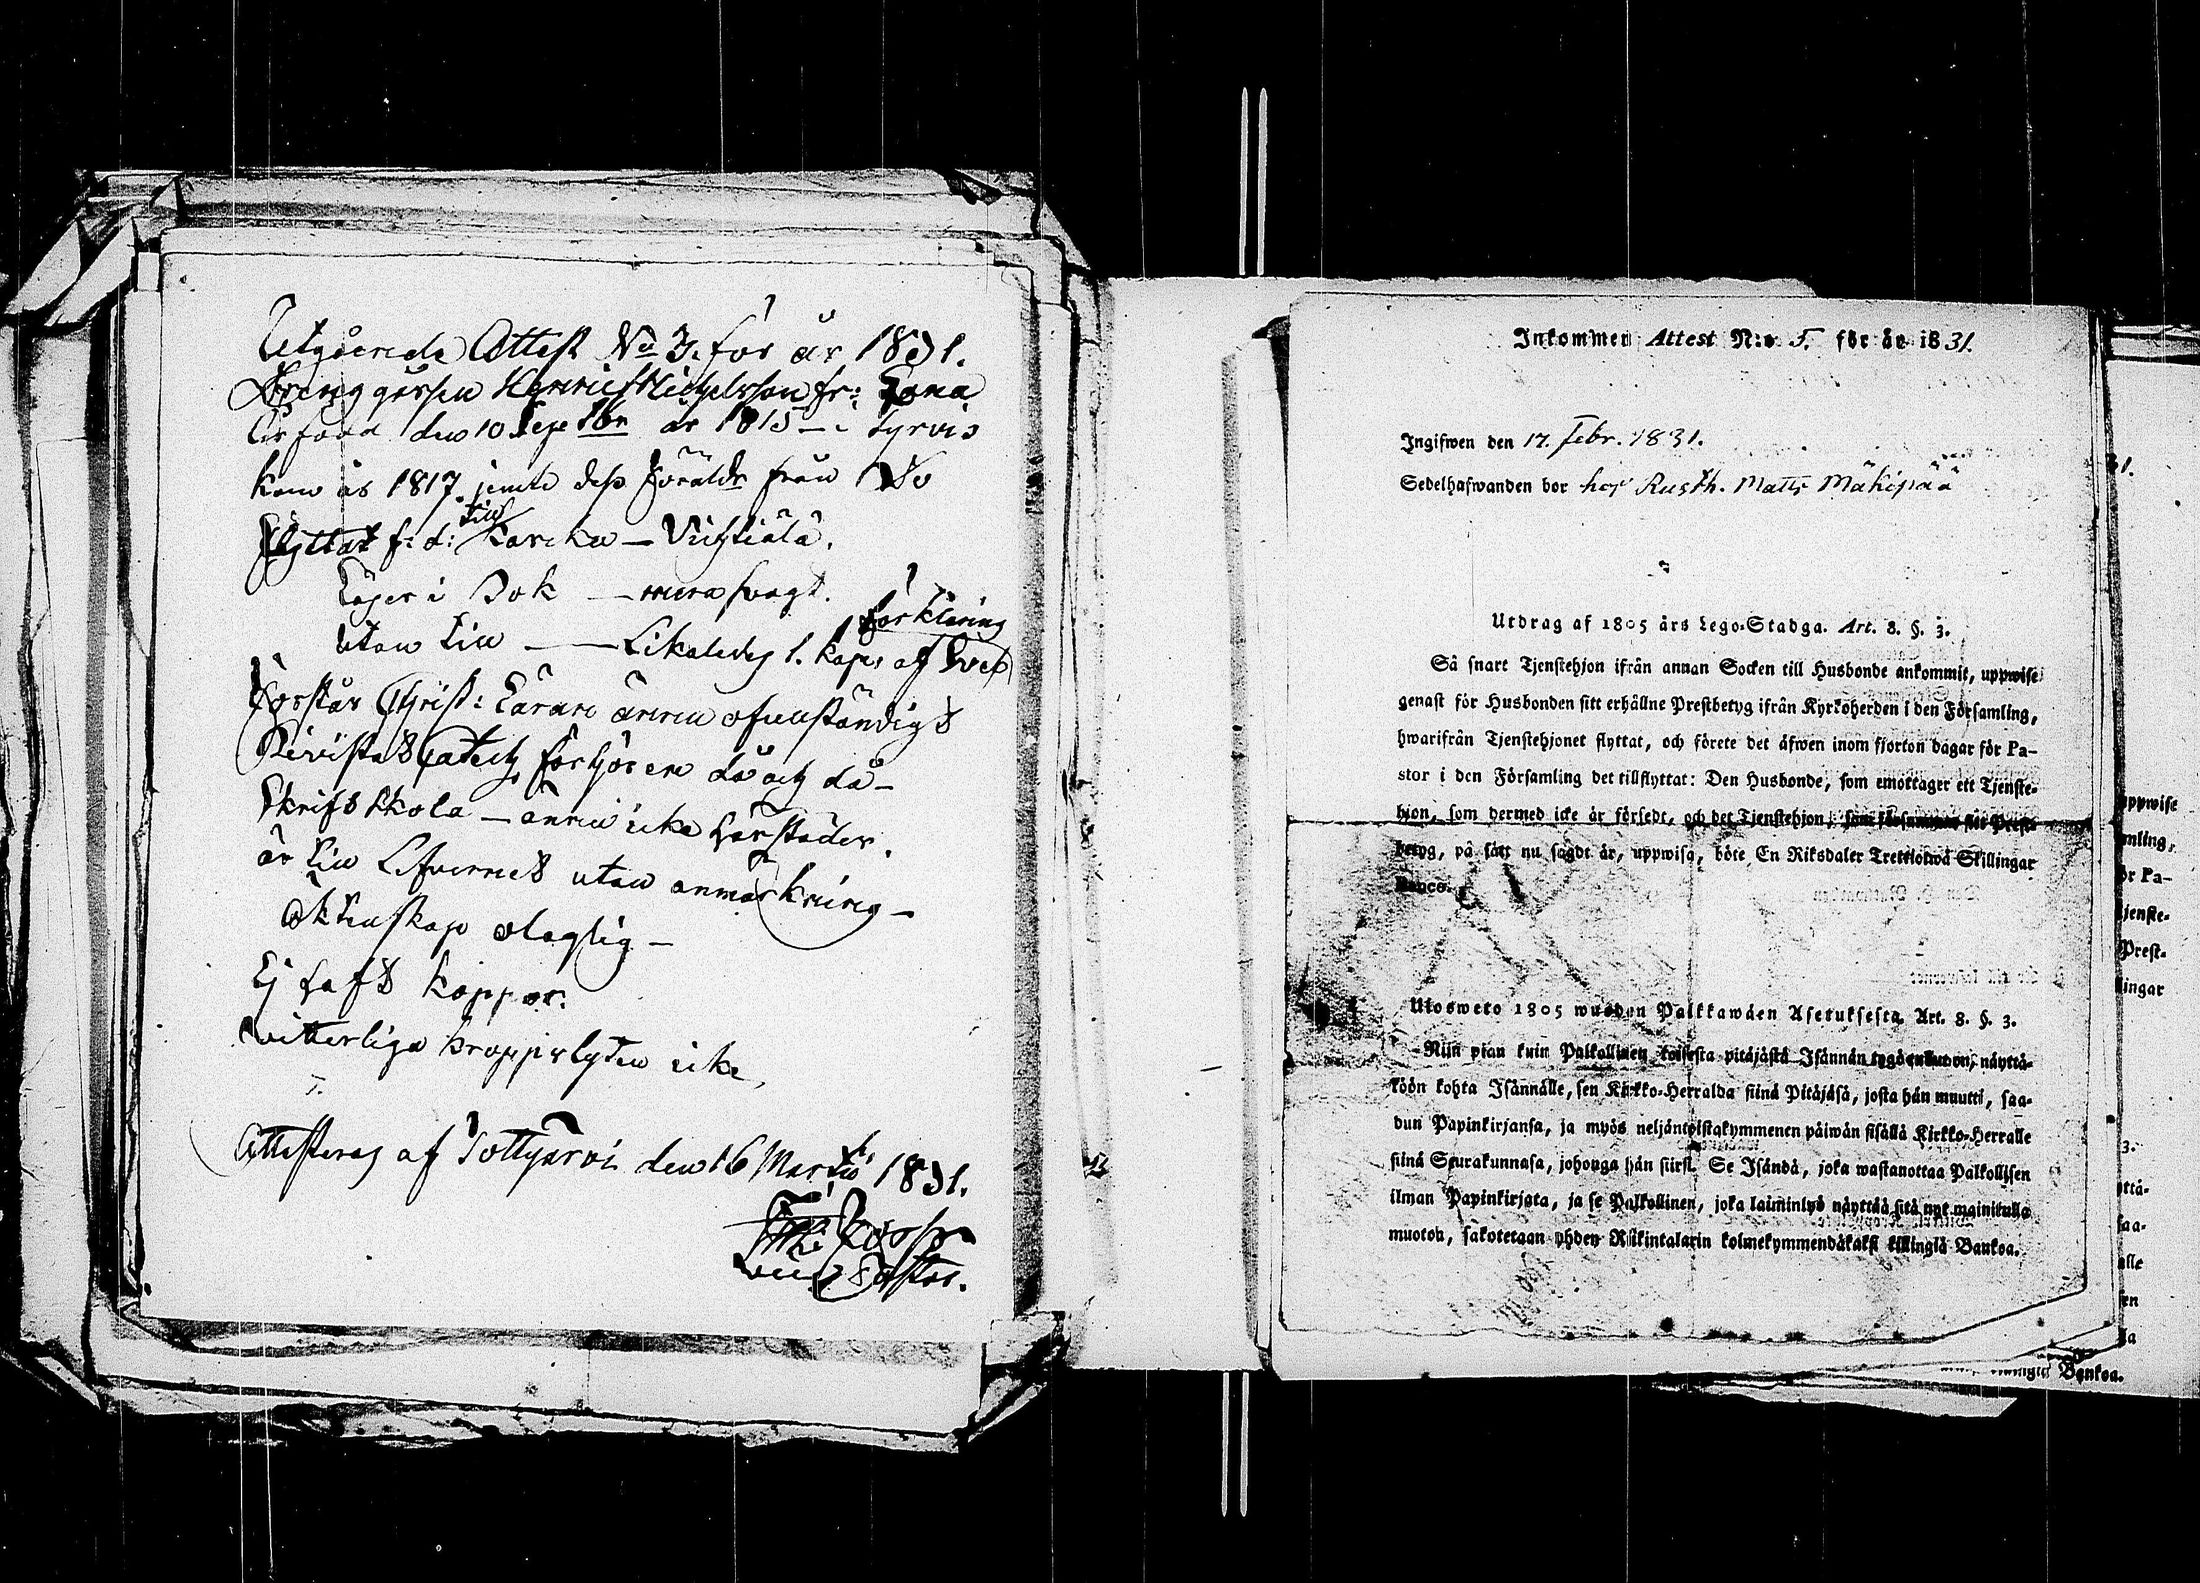 Utgående Attest No 3. för år 1831.
Drenggåssen Henric Michelsson fr:
är född den 10 Septebr år 1815 – i Tyrvis
kom år 1817. jemte dess Föräldr från Do
flyttat f: d: till Karcku –
Läser i Bok – svagt.
utan till – Likaledes 1. kapit af
förklaring
Förstår Christ: Läran ännu ofullständigt
Bevistat Catech. förhören då och då –
Skriftskola – ännu icke
är till Lefvernet utan anmärkning –
Äktenskap olaglig –
Ej haft koppor.
vitterliga kroppslyten icke
Attesteras af Tottijärvi den 16 Martii 1831.
Pastor.
Inkommen Attest N:o 5. för år 1831.
Ingifwen den 17. Febr. 1831.
Sedelhafwanden bor hos Rusth. Matts Mäkipää
Utdrag af 1805 års Lego-Stadga. Art. 8. §. 3.
Så snart Tjenstehjon ifrån annan Socken till Husbonde ankommit, uppwise
genast för Husbonden sitt erhållne Prestbetyg ifrån Kyrkoherden i den Församling,
hwarifrån Tjenstehjonet flyttat, och förete det äfwen inom fjorton dagar för Pa-
stor i den Församling det tillflyttat: Den Husbonde, som emottager ett Tjenste-
hjon, som dermed icke är försedt, och det Tjenstehjon, som försummar sitt Prest-
betyg, på sätt nu sagdt är, uppwisa, böte En Riksdaler Trettiotwå Skillingar
Banco.
Ulosweto 1805 wuoden Palkkawäen Asetuksesta. Art. 8. §. 3.
Niin pian kuin Palkollinen toisesta pitäjästä Isännän tygö tullut on, näyttä-
köön kohta Isännälle, sen Kirkko-Herralda siinä Pitäjäsä, josta hän muutti, saa-
dun Papinkirjansa, ja myös neljäntoistakymmenen päiwän sisällä Kirkko-Herralle
siinä Seurakunnasa, johonga hän siirsi. Se Isändä, joka wastanottaa Palkollisen
ilman Papinkirjata, ja se Palkollinen, joka laiminlyö näyttää sitä nyt mainitulla
muoton, sakotetaan yhden Riikintalarin kolmekymmendäkaksi killingiä Bankoa.
1.
uppwise
mling,
ör Pa-
jenste-
Prest-
lingar
3.
ttä-
saa-
alle
en
Bankoa.